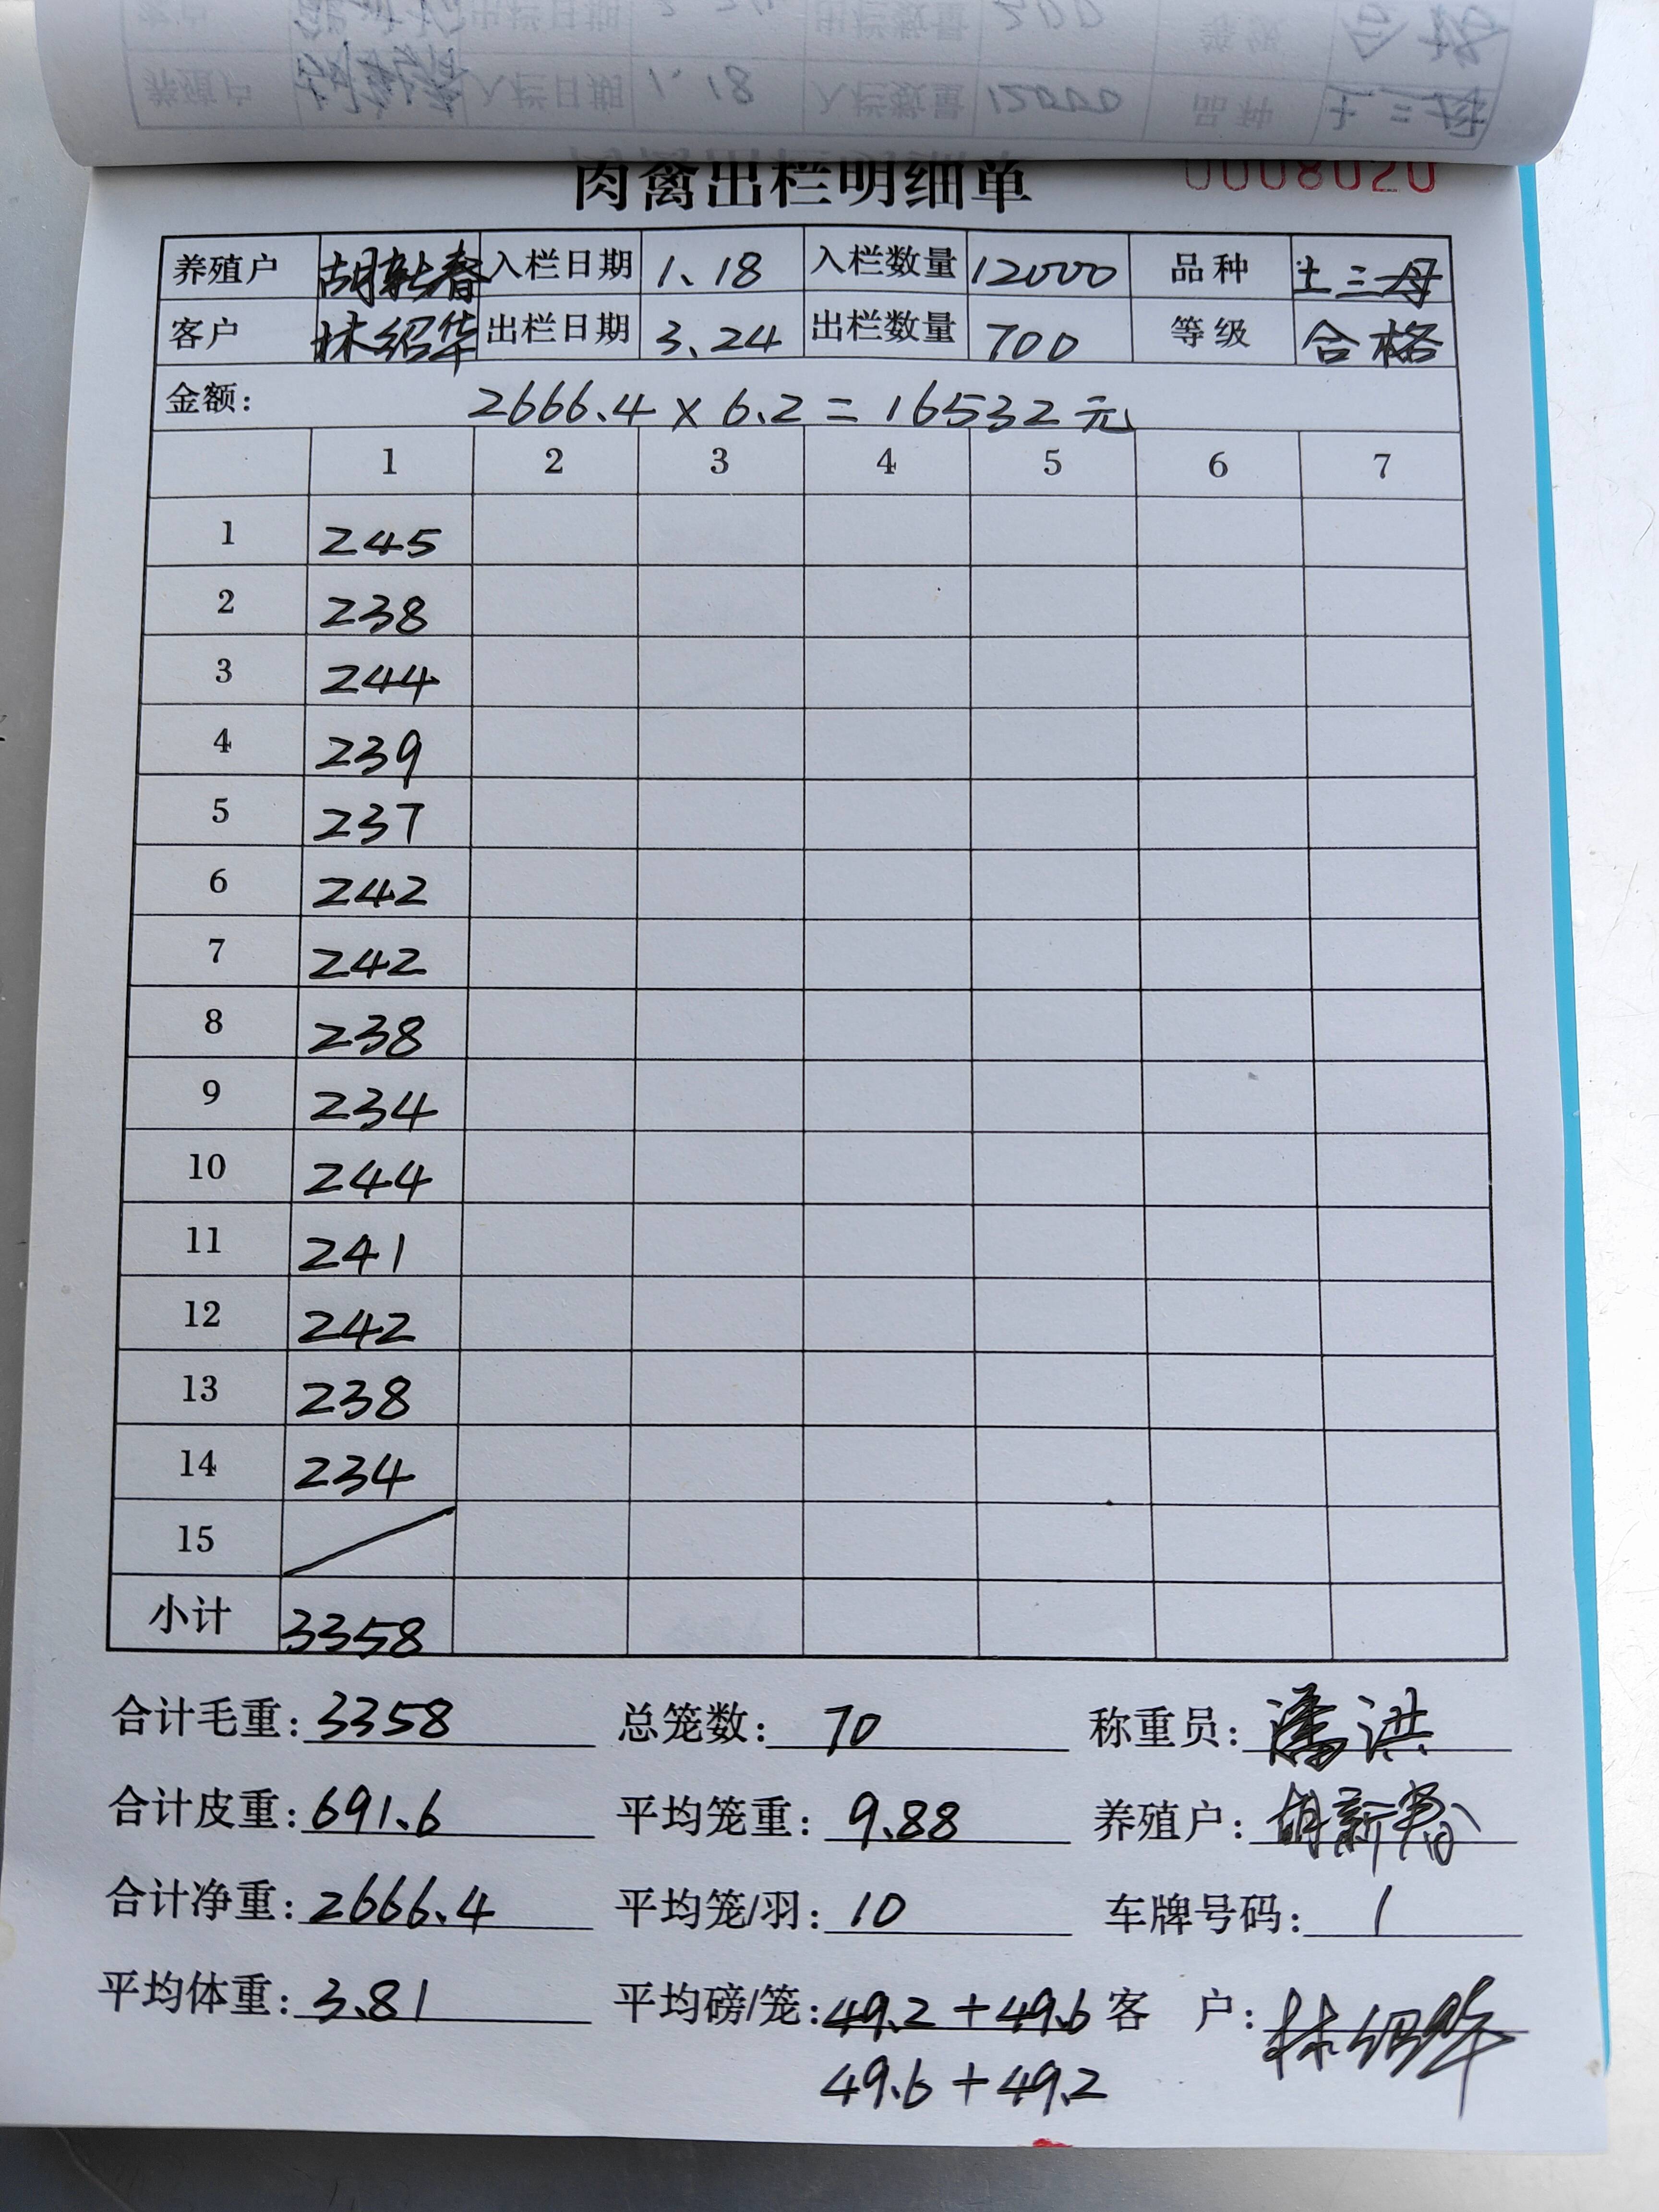 养殖户 入栏日期 1、18 入栏数量 12000 品种 土三母
肉禽出栏明细单 0008020
养殖户 胡新春 入栏日期 1、18 入栏数量 12000 品种 土三母
客户 林绍华 出栏日期 3、24 出栏数量 700 等级 合格
金额: 2666.4 x 6.2 = 16532元
1 2 3 4 5 6 7
1 245
2 238
3 244
4 239
5 237
6 242
7 242
8 238
9 234
10 244
11 241
12 242
13 238
14 234
15
小计 3358
合计毛重: 3358 总笼数: 70 称重员: 潘洪
合计皮重: 691.6 平均笼重: 9.88 养殖户: 胡新春
合计净重: 2666.4 平均笼/羽: 10 车牌号码: 1
平均体重: 3.81 平均磅/笼: 49.2 + 49.6 客 户: 林绍华
49.6 + 49.2